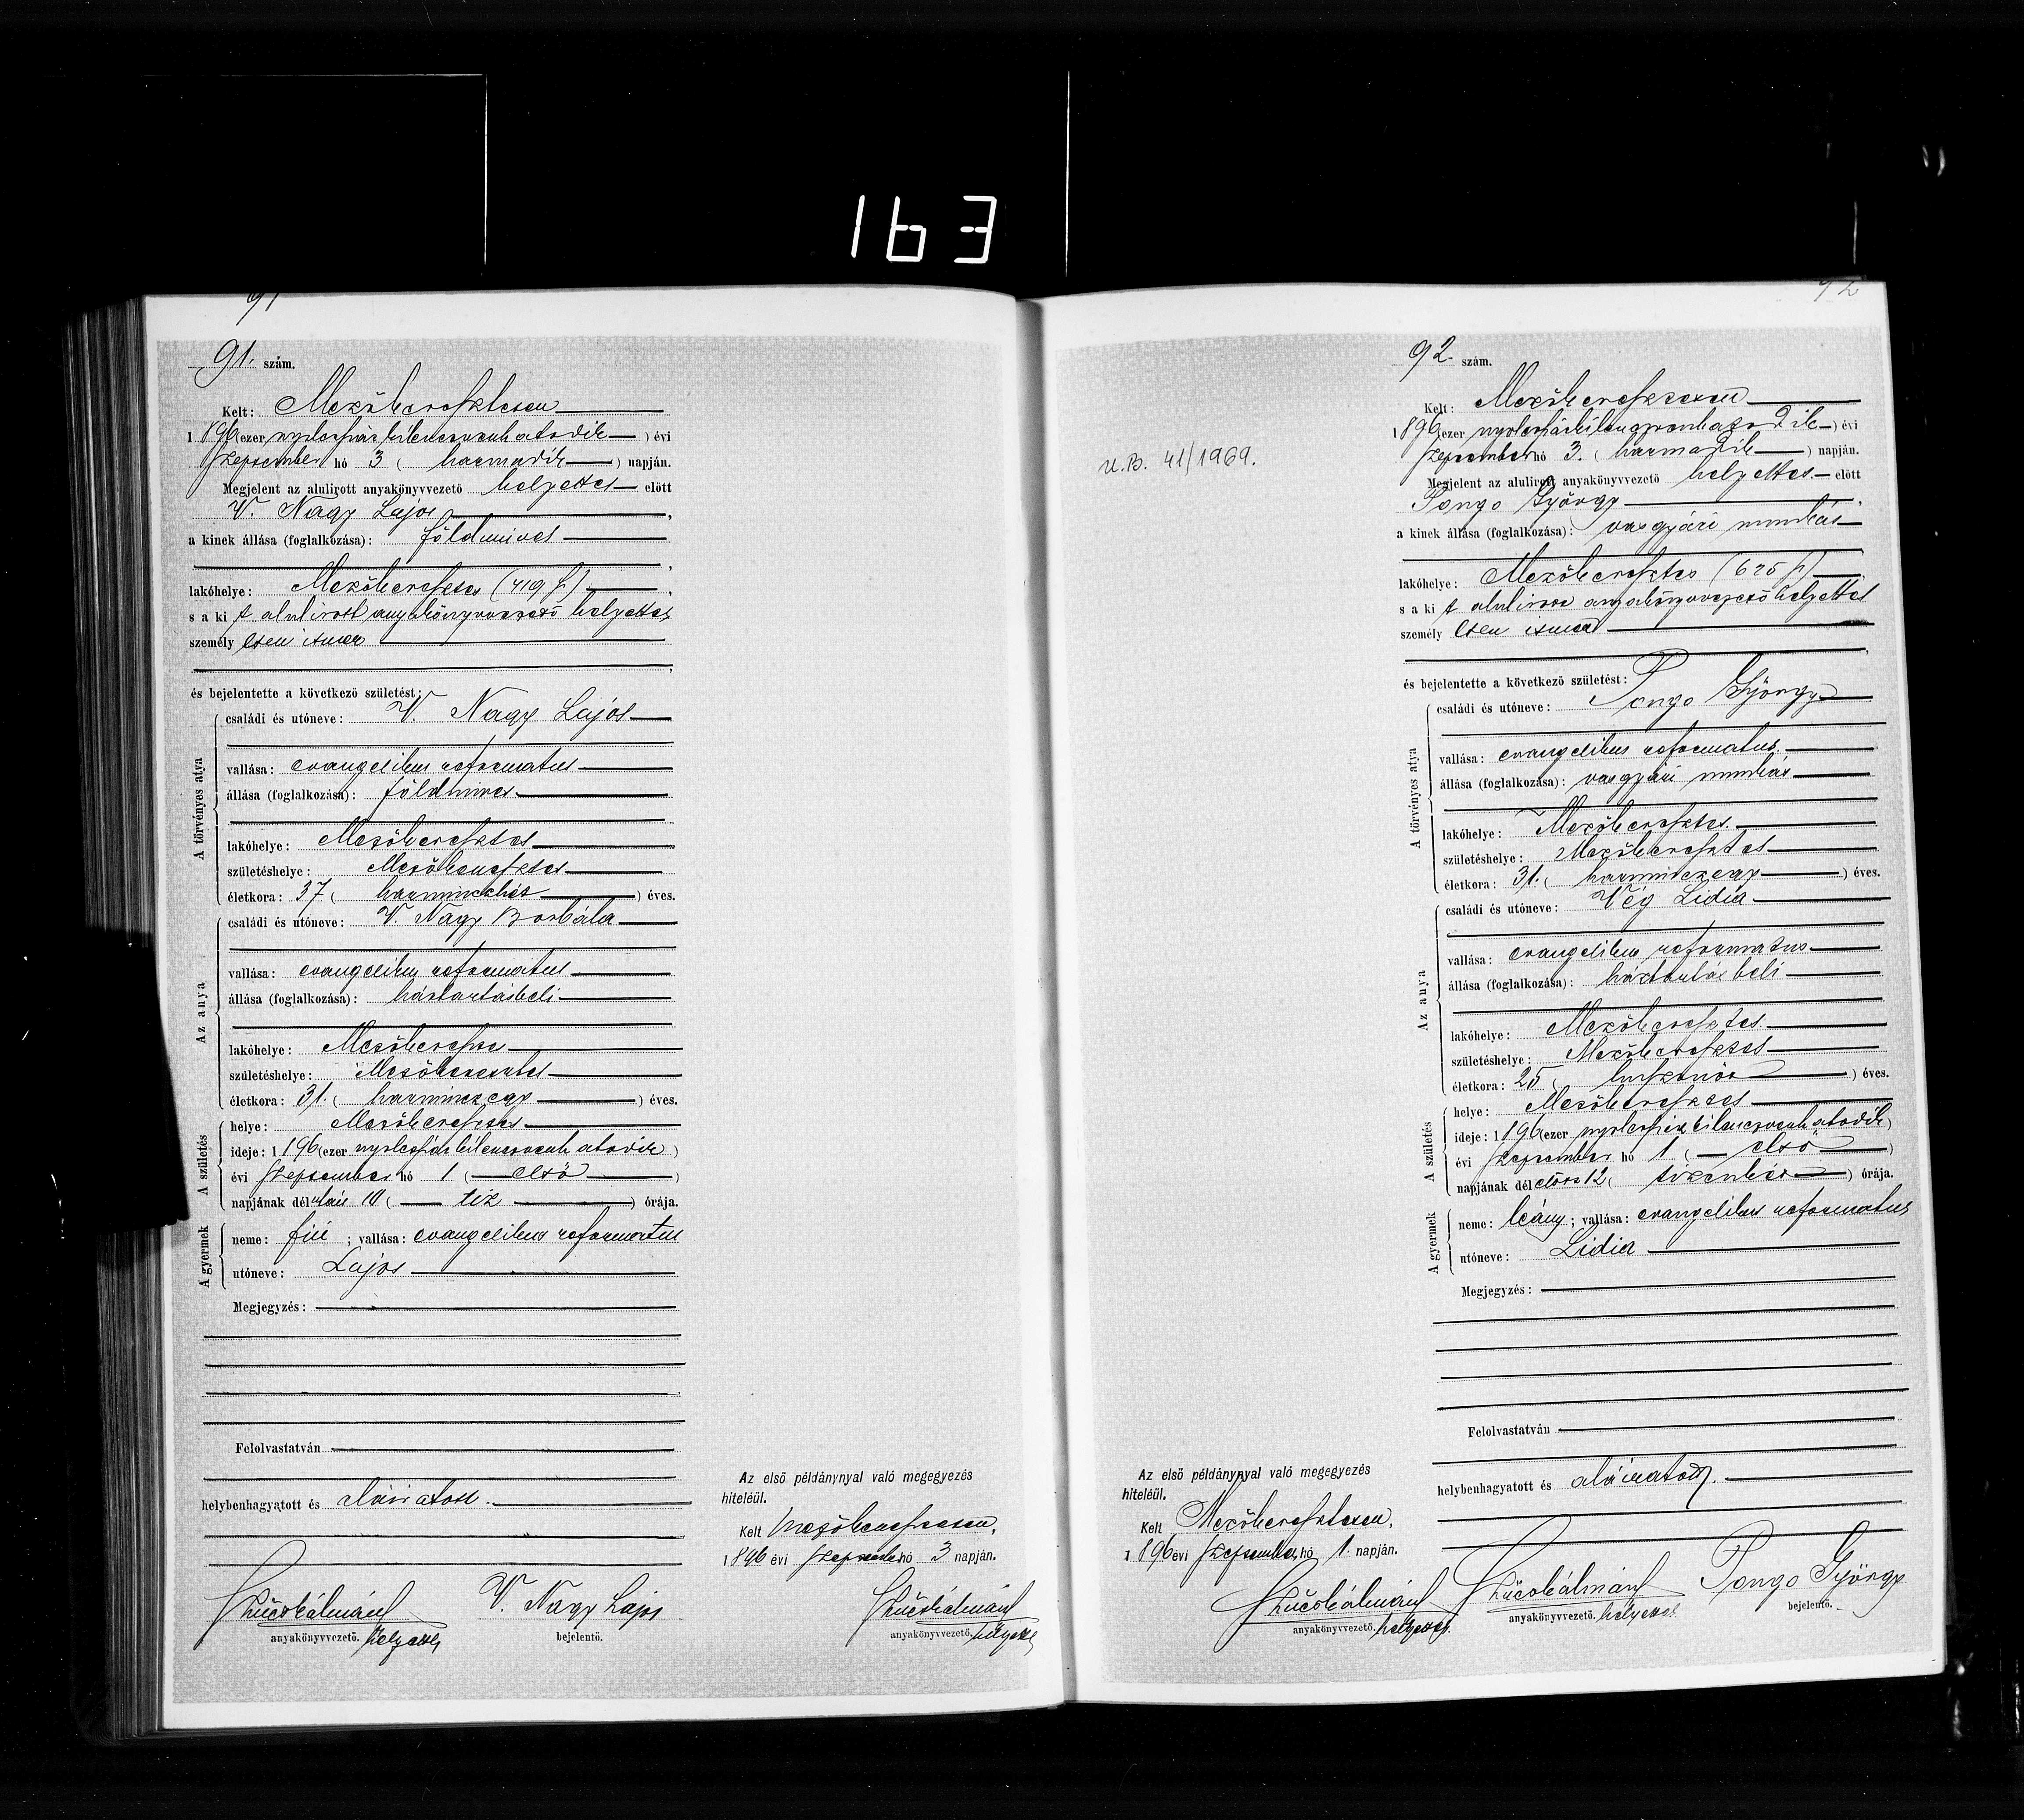 163
91
91. szám.
Kelt: Mezőkeresztesen
1896 (ezer nyolcszáz kilencvenhatodik) évi
szeptember hó 3 (harmadik) napján.
Megjelent az alulírott anyakönyvvezető helyettes előtt
V. Nagy Lajos,
a kinek állása (foglalkozása): földmives
lakóhelye: Mezőkeresztes (419 h),
s a kit alulirott anyakönyvvezető helyettes
személyesen ismer
és bejelentette a következő születést:
A törvényes atya
családi és utóneve: V. Nagy Lajos
vallása: evangelikus reformatus
állása (foglalkozása): földmives
lakóhelye: Mezőkeresztes
születéshelye: Mezőkeresztes
életkora: 37 (harminczhét) éves.
Az anya
családi és utóneve: V. Nagy Borbála
vallása: evangelikus reformatus
állása (foglalkozása): háztartásbeli
lakóhelye: Mezőkeresztes
születéshelye: Mezőkeresztes
életkora: 31. (harminczegy) éves.
A születés
helye: Mezőkeresztes
ideje: 1196 (ezer nyolcszáz kilenczvenhatodik)
évi szeptember hó 1 (első)
napjának délután 10 (tiz) órája.
A gyermek
neme: fiú; vallása: evangelikus reformatus
utóneve: Lajos
Megjegyzés:
Felolvastatván
helybenhagyatott és aláiratott.
anyakönyvvezető. helyettes
V. Nagy Lajos
bejelentő.
Az első példánynyal való megegyezés
hiteléül.
Kelt Mezőkeresztesen,
1896 évi szeptember hó 3 napján.
anyakönyvvezető. helyettes
92
U.B. 41/1969.
92. szám.
Kelt: Mezőkeresztesen
1896 (ezer nyolcszázkilenczvenhatodik) évi
szeptember hó 3. (harmadik) napján.
Megjelent az alulírott anyakönyvvezető helyettes előtt
Pongo György,
a kinek állása (foglalkozása): vasgyári munkás
lakóhelye: Mezőkeresztes (625 h),
s a kit alulirott anyakönyvvezető helyettes
személyesen ismer
és bejelentette a következő születést:
A törvényes atya
családi és utóneve: Pongo György
vallása: evangelikus reformatus.
állása (foglalkozása): vasgyári munkás
lakóhelye: Mezőkeresztes.
születéshelye: Mezőkeresztes
életkora: 31. (harminczegy) éves.
Az anya
családi és utóneve: Vég Lidia
vallása: evangelikus reformatus
állása (foglalkozása): háztartásbeli
lakóhelye: Mezőkeresztes
születéshelye: Mezőkeresztes
életkora: 25 (huszonöt) éves.
A születés
helye: Mezőkeresztes
ideje: 1196 (ezer nyolcszáz kilenczvenhatodik)
évi szeptember hó 1 (első)
napjának délelőtt 12 (tizenkét) órája.
A gyermek
neme: leány; vallása: evangelikus reformatus
utóneve: Lidia
Megjegyzés:
Felolvastatván
helybenhagyatott és aláiratott.
anyakönyvvezető. helyettes
Pongo György
bejelentő.
Az első példánynyal való megegyezés
hiteléül.
Kelt Mezőkeresztesen,
1896 évi szeptember hó 1. napján.
anyakönyvvezető. helyettes.